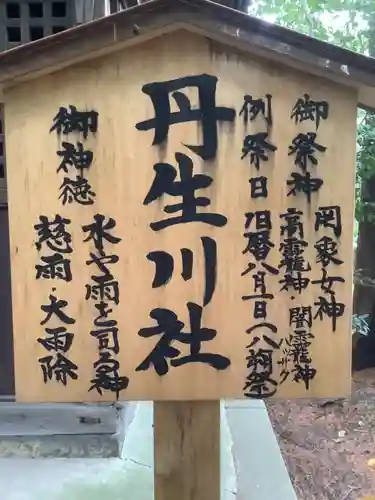 御祭神
罔象女神
高龗神・闇龗神
例祭日
旧暦八月一日（八朔祭）
ハッサク
丹生川社
御神徳
水や雨を司る神
慈雨・大雨除